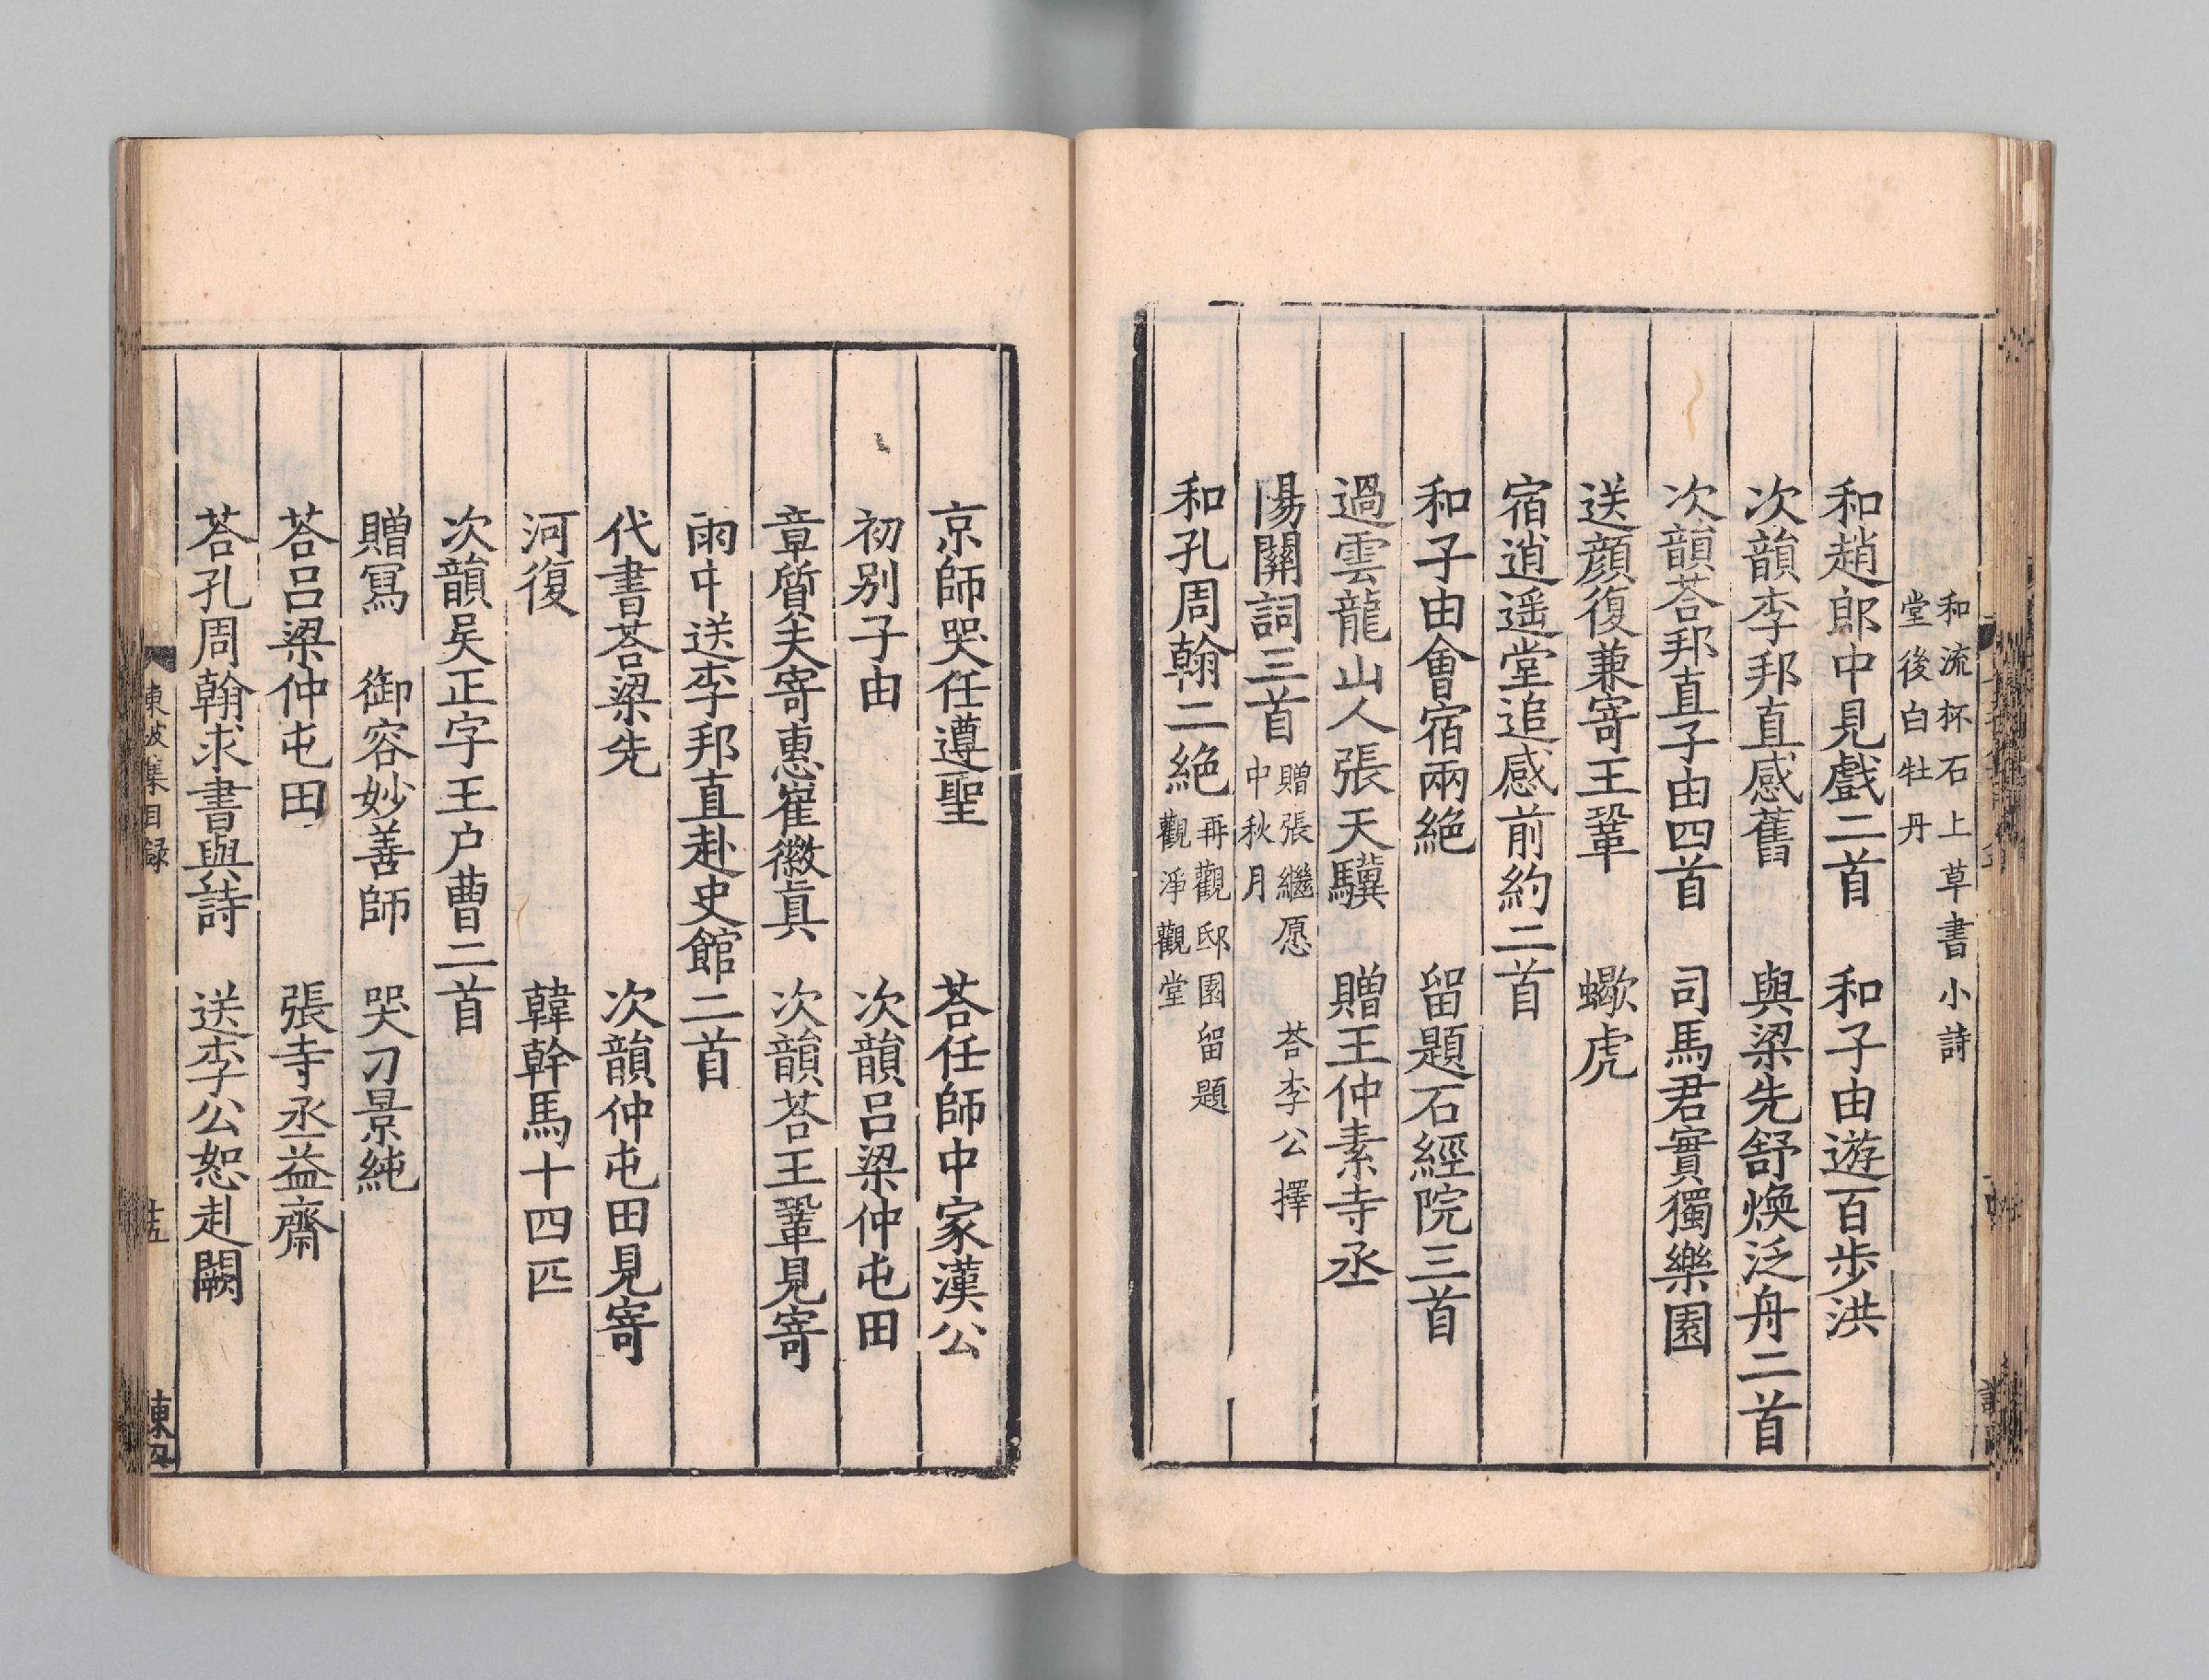 和流杯石上草書小詩
堂後白牡丹
和趙郎中見戲二首　和子由遊百步洪
次韻李邦直感舊　與梁先舒煥泛舟二首
次韻荅邦直子由四首　司馬君實獨樂園
送顔復兼寄王鞏　蠍虎
宿逍遥堂追感前約二首
和子由會宿兩絶　留題石經院三首
過雲龍山人張天驥　贈王仲素寺丞
陽關詞三首　贈張繼愿　荅李公擇
中秋月
和孔周翰二絶　再觀邸園留題
觀淨觀堂
京師哭任遵聖　荅任師中家漢公
初别子由　次韻吕梁仲屯田
章質夫寄惠崔徽真　次韻荅王鞏見寄
雨中送李邦直赴史館二首
代書荅梁先　次韻仲屯田見寄
河復　韓幹馬十四匹
次韻吴正字王户曹二首
贈寫　御容妙善師　哭刁景純
荅吕梁仲屯田　張寺丞益齋
荅孔周翰求書與詩　送李公恕赴闕
東坡集目録